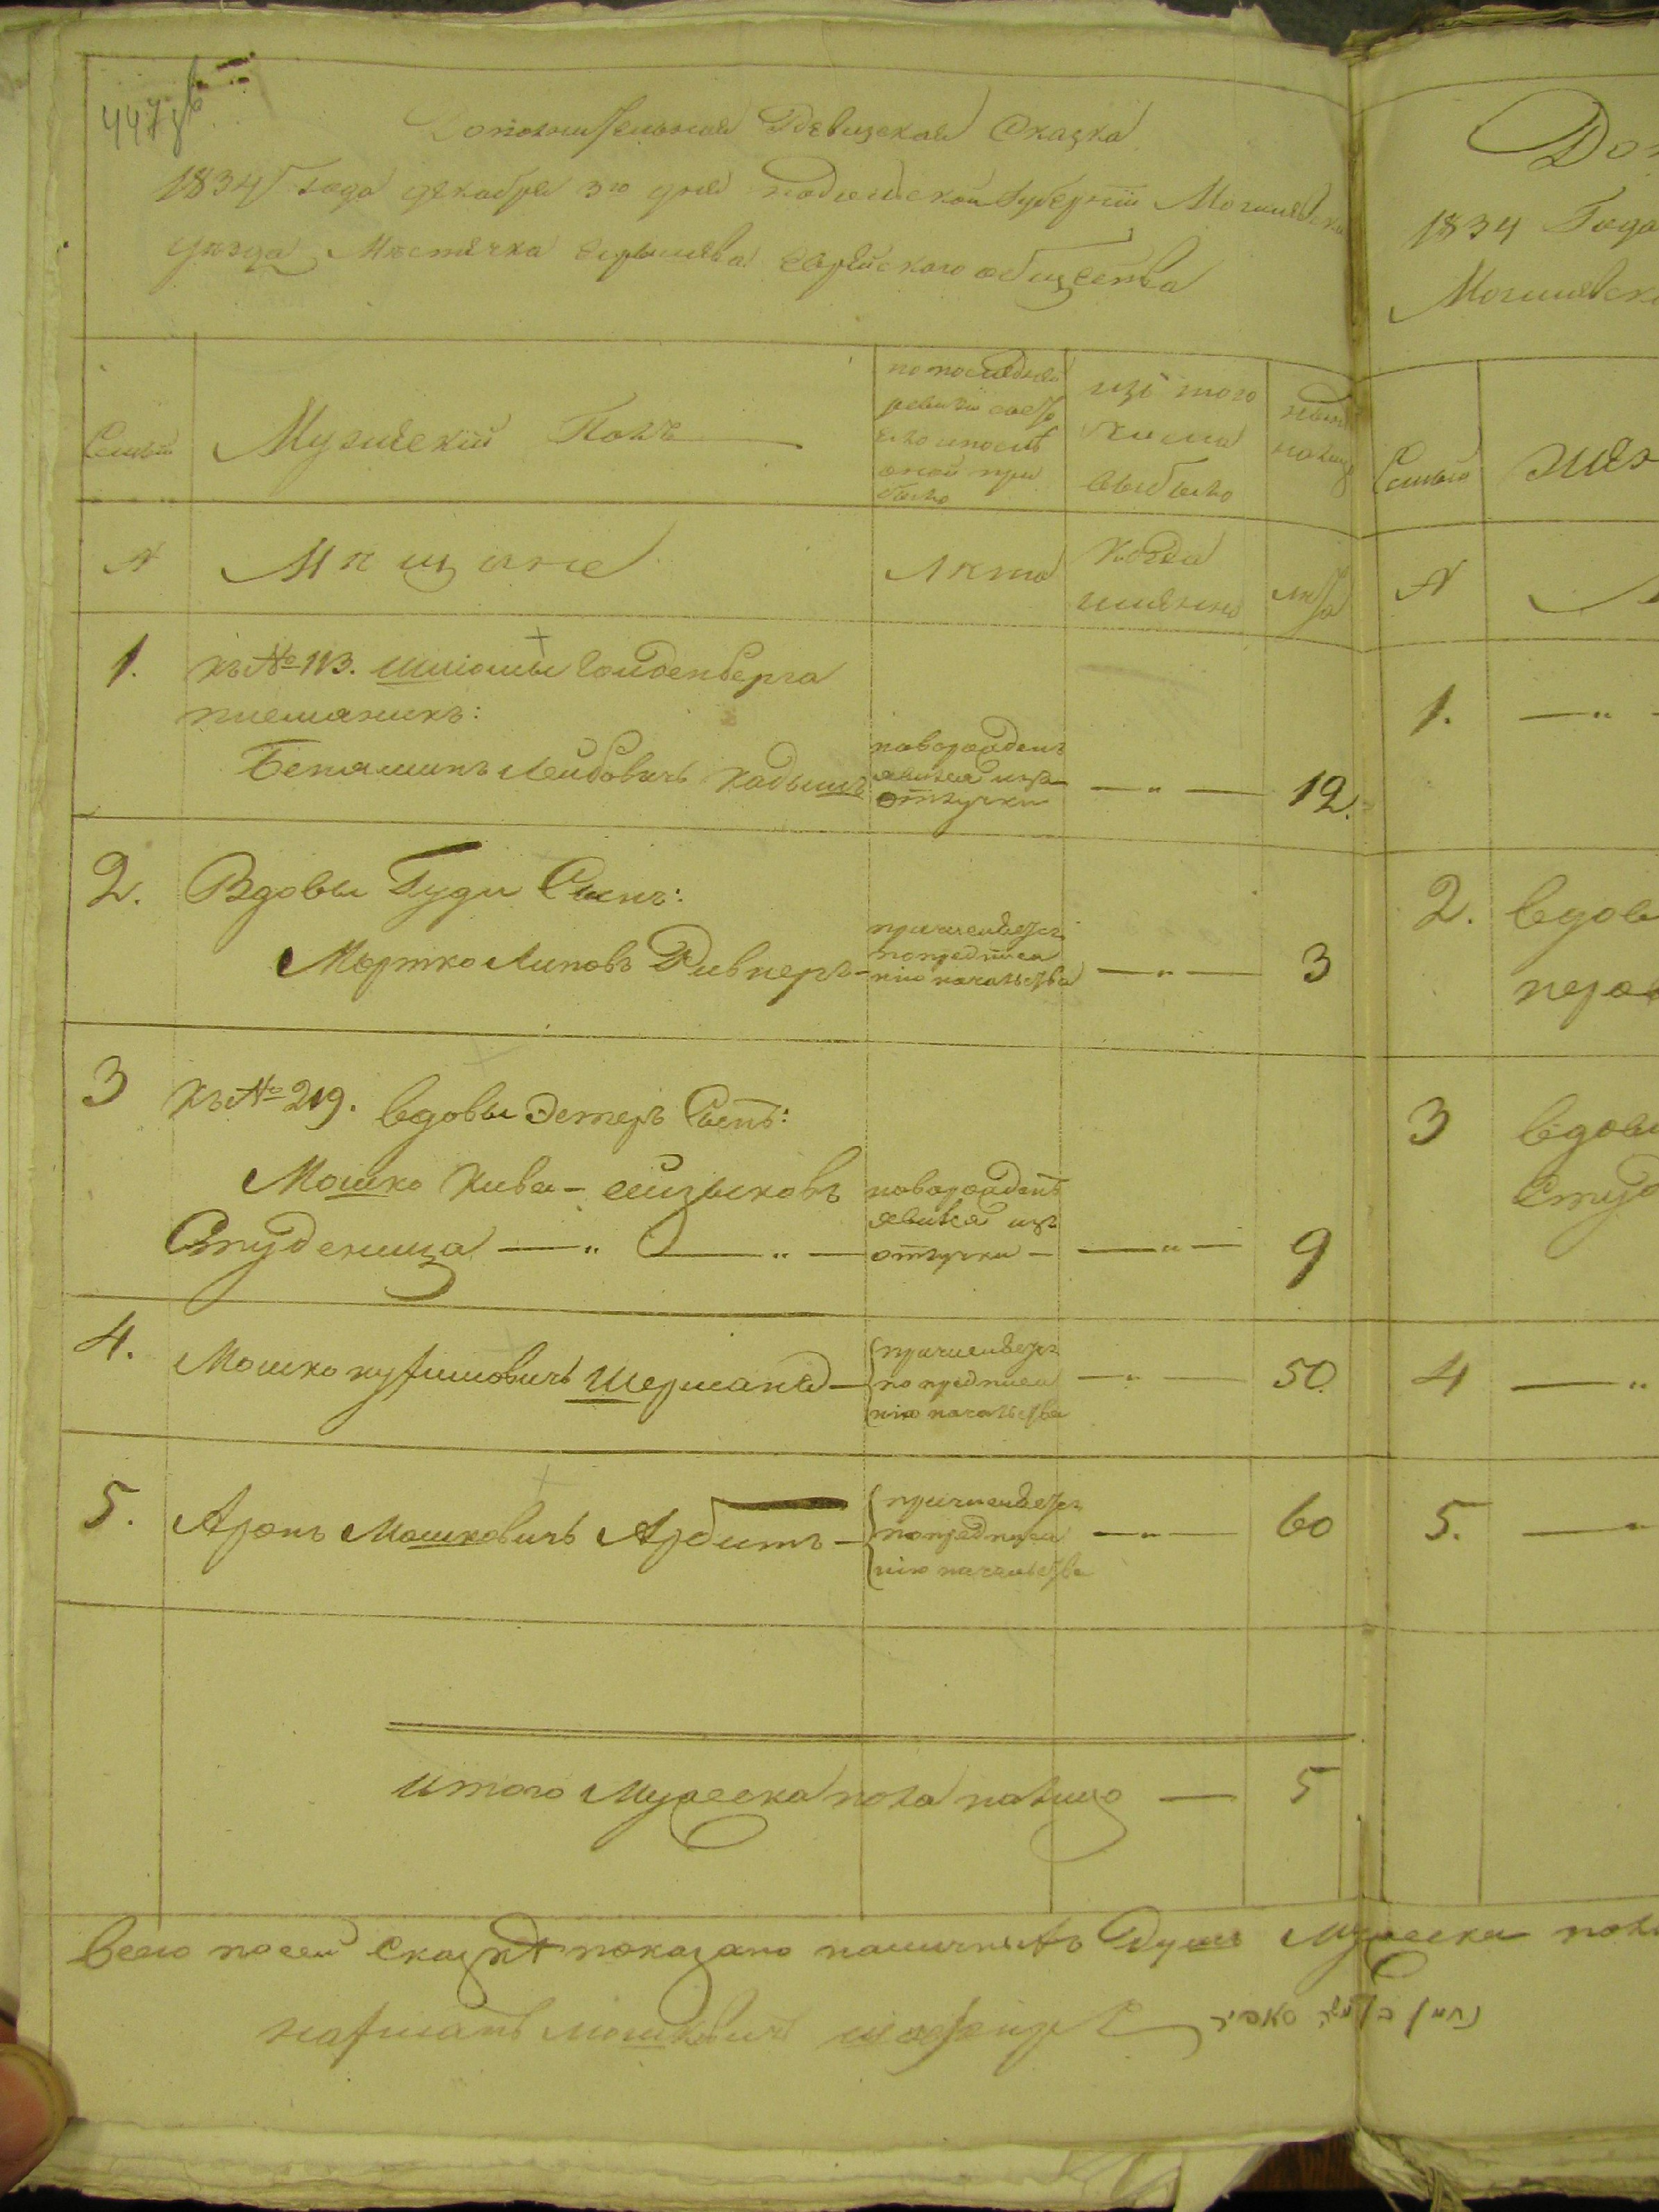 447
Дополнительная Ревизская Сказка
1834 года декабря 3го дня подольской Губернiи Могилевска
уѣзда Мѣстечка Ярышева Еврейского общества
Семьи
Мужескiй Полъ
по последней
ревизiи состо
яло и послѣ
оной при
было
изъ того
числа
выбыло
нынѣ
на лицо
№
Мѣщане
лѣта
Когда
именно
лѣта
1.
къ № 113. Шлiомы Гольденберга
племяникъ:
Бенямин Лейбовичъ Кадышъ
новорожденъ
явился изъ
отлучки
— „ —
12.
2.
Вдовы Гуди Сынъ:
Мортко Липовъ Ривнеръ —
причисляется
по предписа
нiю начальства
— „ —
3
3
къ № 219. вдовы Эстеръ Сынъ:
Мошко Кива - Айзыковъ
Студеница — „ — „ —
новорожденъ
явился изъ
отлучки —
— „ —
9
4.
Мошко Шерманъ —
причисляется
по предписа
нiю начальства
— „ —
50.
5.
Аронъ Мошковичъ Арбитъ —
причисляется
по предписа
нiю начальства
— „ —
60
Итого Мужеска пола налицо — 5
Всего по сей сказкѣ показано наличныхъ Душъ Мужеска пола
Мошковичъ
Доп
1834 Года
Могилевск
Семьи
Жен
№
1. — „ -
2. вдов
3 вдов
Студ
4 — „
5. —